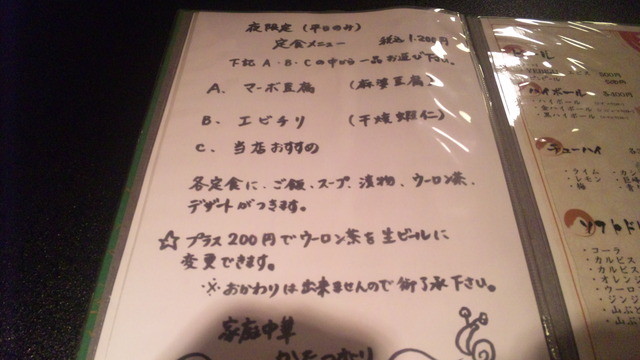 夜限定(平日のみ)
定食メニュー 税込 1,200円
下記 A・B・Cの中から 一品お選び下さい。
A. マーボ豆腐 (麻婆豆腐)
B. エビチリ (干焼蝦仁)
C. 当店おすすめ
各定食に、ご飯、スープ、漬物、ウーロン茶、
デザートがつきます。
☆ プラス200円でウーロン茶を生ビールに
変更できます。
※ おかわりは出来ませんので御了承下さい。
家庭中華
ハイボール
・ハイボール
チューハイ
・ライム
・レモン
・梅
ソフトドリ
・コーラ
・カルピス
・カルピス
・オレン
・ウーロ
・ジン
・山ぶ
・山ぶ